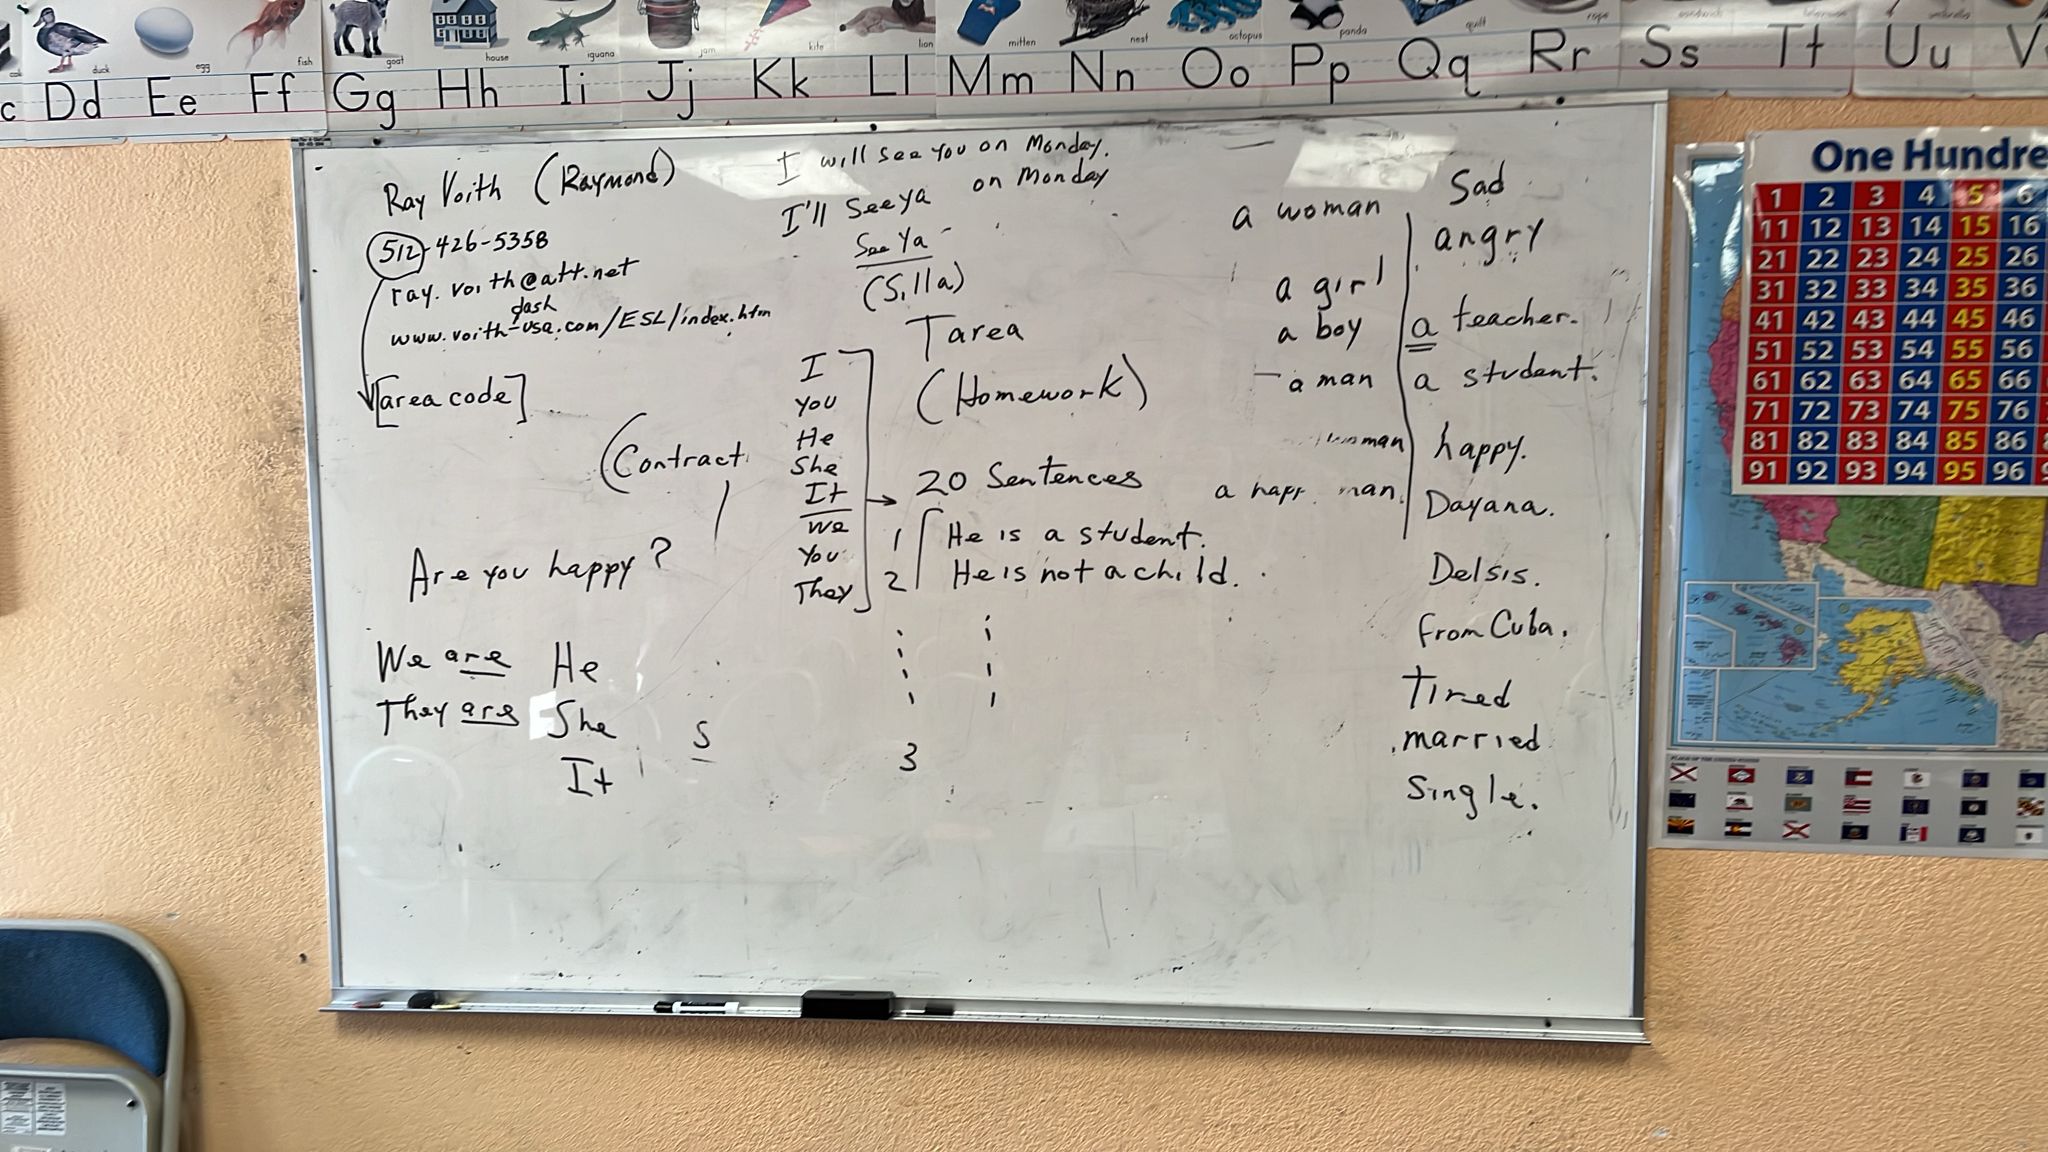 duck
egg
fish
goat
house
iguana
jam
kite
lion
mitten
nest
octopus
panda
quilt
rope
sandwich
umbrella
c Dd Ee Ff Gg Hh Ii Jj Kk Ll Mm Nn Oo Pp Qq Rr Ss Tt Uu V
Ray Voith (Raymond)
512-426-5358
ray.voith@att.net
dash
www.voith-usa.com/ESL/index.htm
[area code]
(Contract
Are you happy?
We are
They are
He
She
It
S
I will see you on Monday.
I'll See ya on Monday
See Ya
(Silla)
Tarea
(Homework)
I
You
He
She
It
We
You
They
20 Sentences
1 He is a student.
2 He is not a child.
3
a woman
a girl
a boy
a man
woman
a happ man
Sad
angry
a teacher.
a student.
happy.
Dayana.
Delsis.
from Cuba.
Tired
married
Single.
One Hundre
1 2 3 4 5 6
11 12 13 14 15 16
21 22 23 24 25 26
31 32 33 34 35 36
41 42 43 44 45 46
51 52 53 54 55 56
61 62 63 64 65 66
71 72 73 74 75 76
81 82 83 84 85 86
91 92 93 94 95 96
FLAGS OF THE UNITED STATES